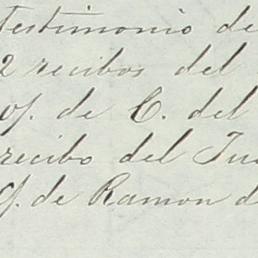 testimonio de
2 recibos del
of. de C. del
recibo del Ju
of. de Ramon d